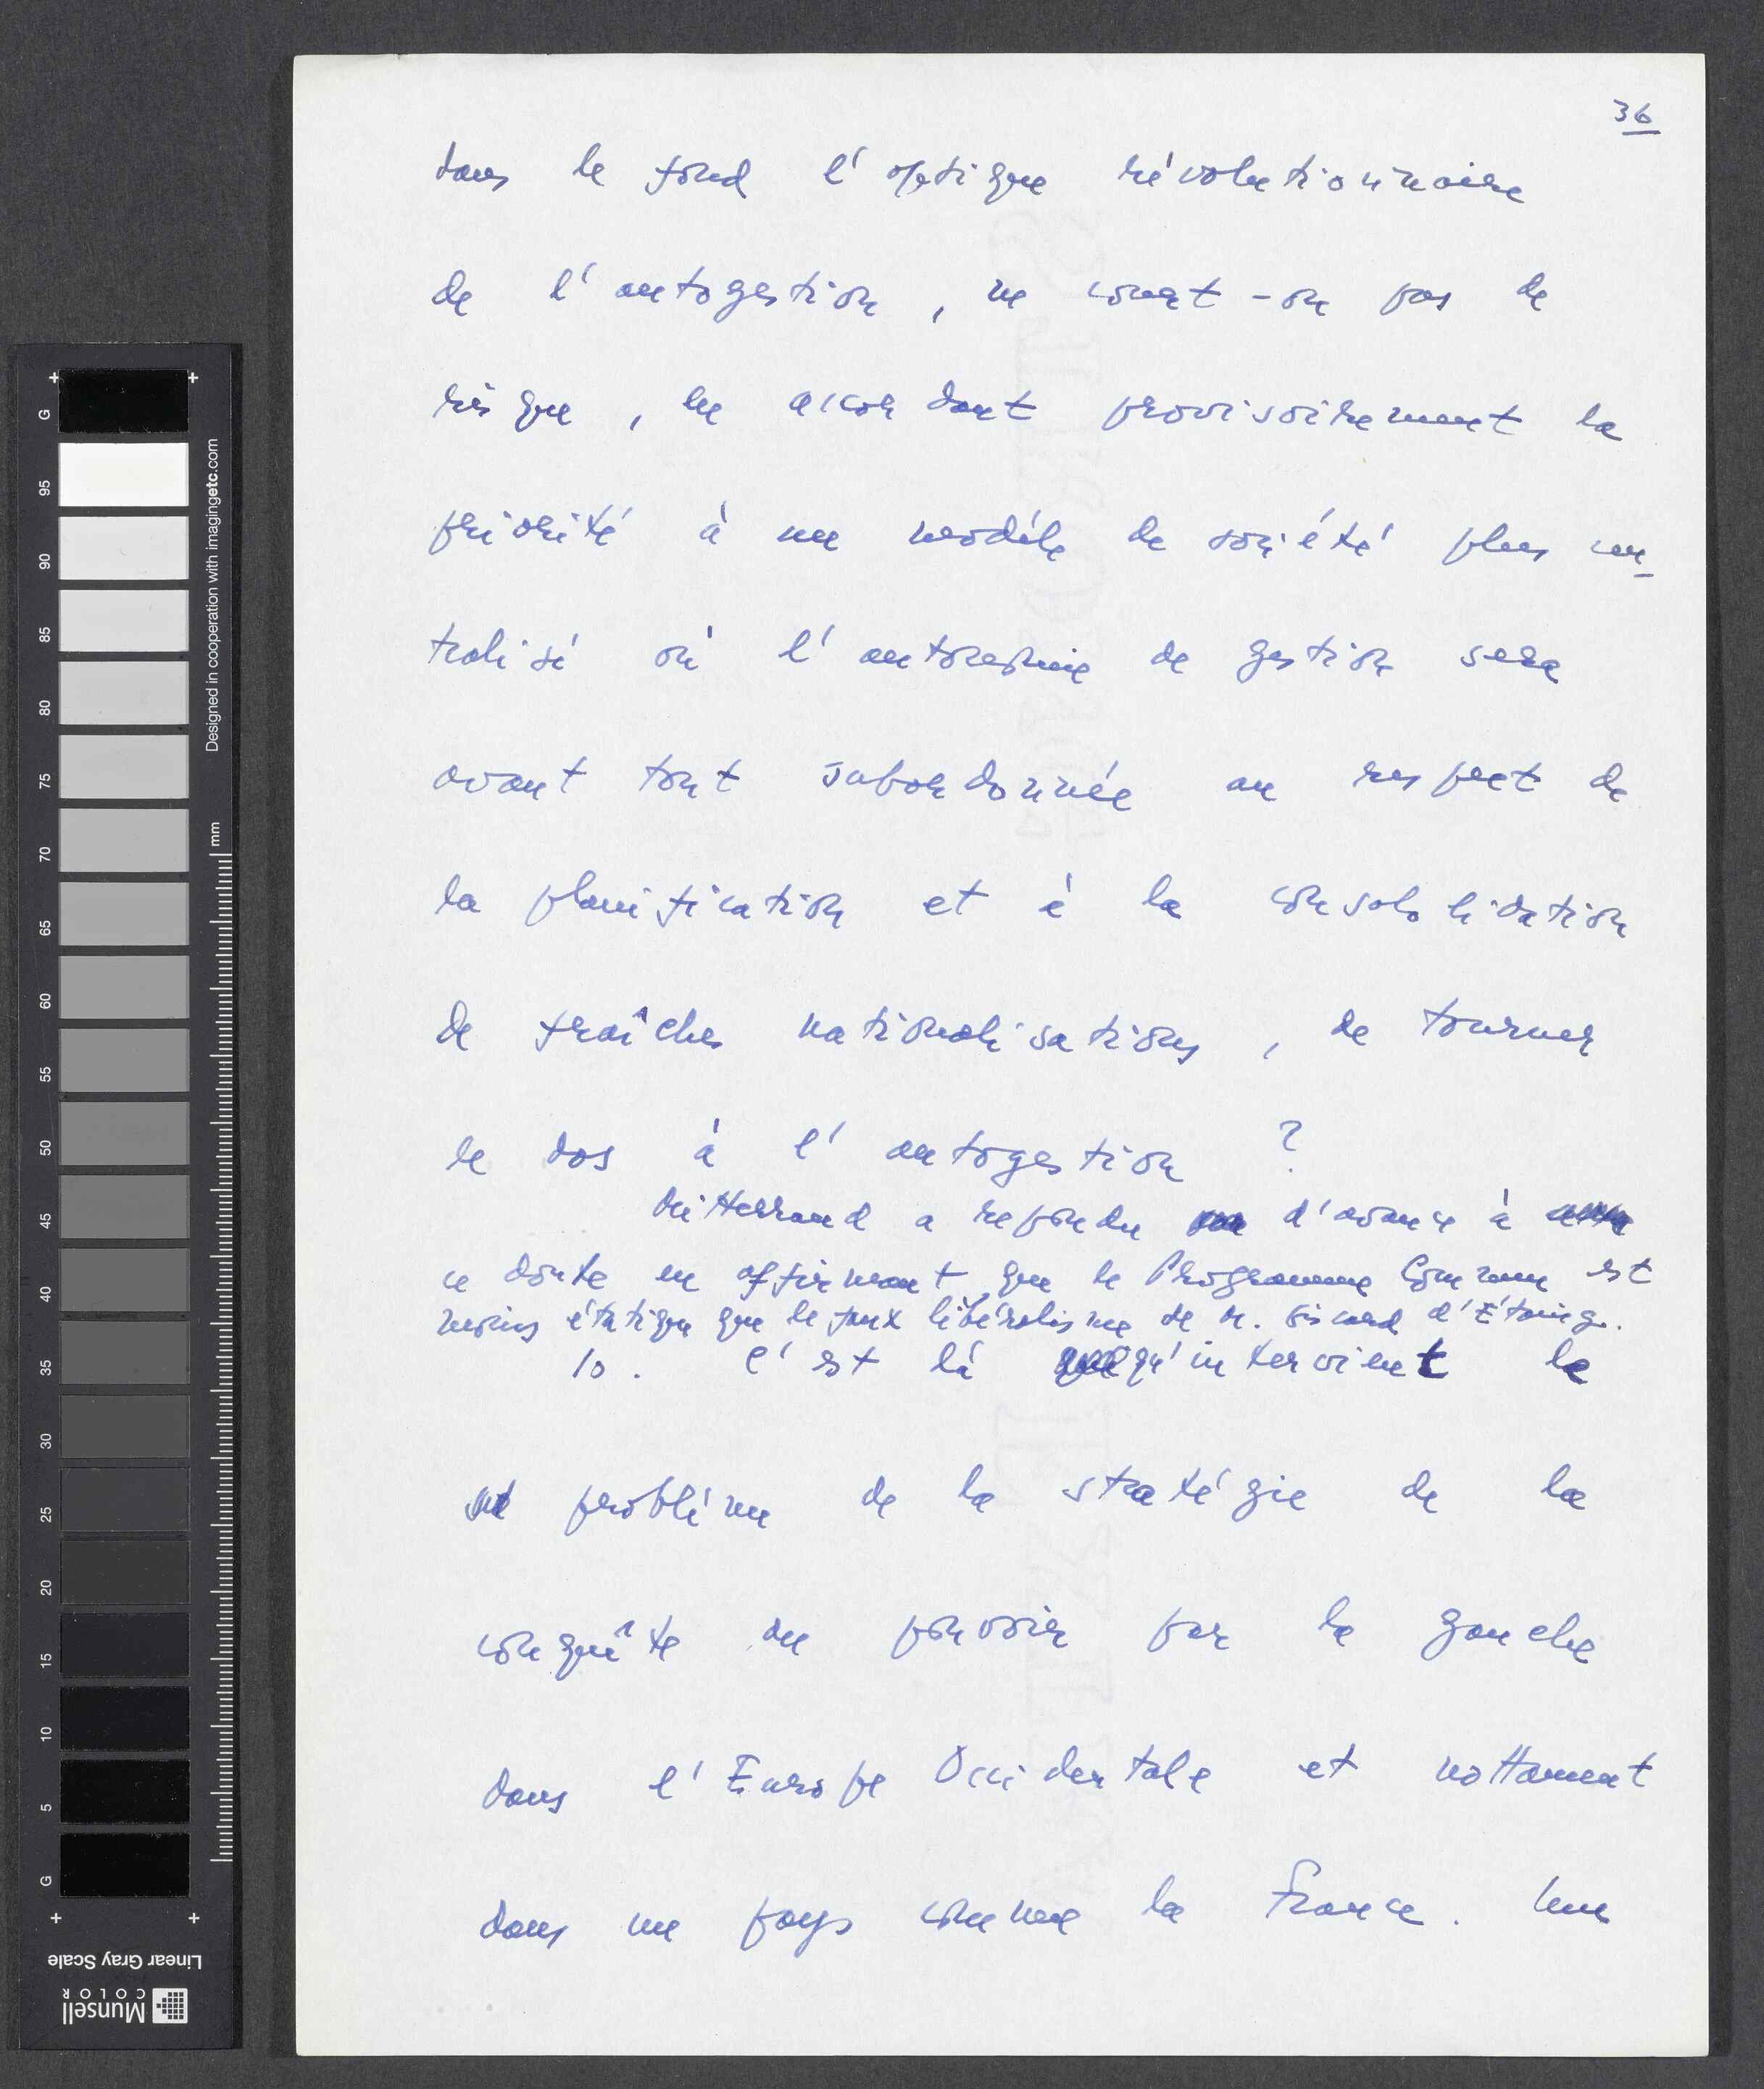 36
dans le fond l'optique révolutionnaire
de l'autogestion, ne court-on pas de
risque, en accordant provisoirement la
priorité à un modèle de société plus cen
tralisé où l'autonomie de gestion sera
avant tout subordonnée au respect de
la planification et à la consolidation
de fraîches nationalisations, de tourner
le dos à l'autogestion ?
Mitterrand a repondu d'avance à
ce doute en affirmant que le Programme Commun est
moins étatique que le faux libéralisme de M. Giscard d'Estaing.
10. C'est là qu'intervient le
problème de la stratégie de la
conquête du pouvoir par la gauche
dans l'Europe Occidentale et nottament
dans un pays comme la France. Une
G
95
90
85
80
75
70
65
60
55
50
45
40
35
30
25
20
15
10
5
G
Designed in cooperation with imagingetc.com
mm
Linear Gray Scale
Munsell
COLOR